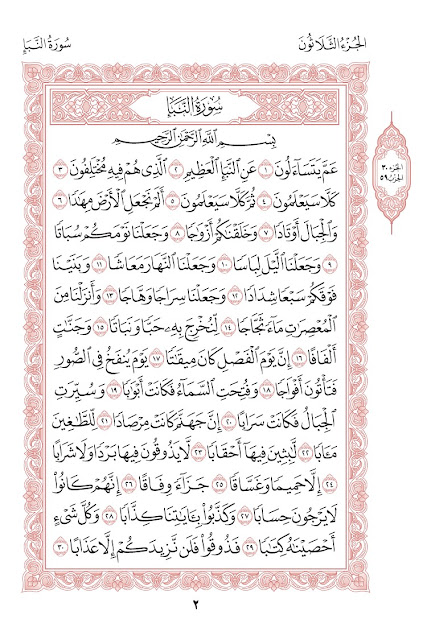 الجُزْءُ الثَّلَاثُونَ
سُورَةُ النَّبَإِ
سُورَةُ النَّبَإِ
بِسْمِ ٱللَّهِ ٱلرَّحْمَٰنِ ٱلرَّحِيمِ
عَمَّ يَتَسَآءَلُونَ ١ عَنِ ٱلنَّبَإِ ٱلْعَظِيمِ ٢ ٱلَّذِى هُمْ فِيهِ مُخْتَلِفُونَ ٣
كَلَّا سَيَعْلَمُونَ ٤ ثُمَّ كَلَّا سَيَعْلَمُونَ ٥ أَلَمْ نَجْعَلِ ٱلْأَرْضَ مِهَٰدًا ٦
وَٱلْجِبَالَ أَوْتَادًا ٧ وَخَلَقْنَٰكُمْ أَزْوَٰجًا ٨ وَجَعَلْنَا نَوْمَكُمْ سُبَاتًا
٩ وَجَعَلْنَا ٱلَّيْلَ لِبَاسًا ١٠ وَجَعَلْنَا ٱلنَّهَارَ مَعَاشًا ١١ وَبَنَيْنَا
فَوْقَكُمْ سَبْعًا شِدَادًا ١٢ وَجَعَلْنَا سِرَاجًا وَهَّاجًا ١٣ وَأَنزَلْنَا مِنَ
ٱلْمُعْصِرَٰتِ مَآءً ثَجَّاجًا ١٤ لِّنُخْرِجَ بِهِۦ حَبًّا وَنَبَاتًا ١٥ وَجَنَّٰتٍ
أَلْفَافًا ١٦ إِنَّ يَوْمَ ٱلْفَصْلِ كَانَ مِيقَٰتًا ١٧ يَوْمَ يُنفَخُ فِى ٱلصُّورِ
فَتَأْتُونَ أَفْوَاجًا ١٨ وَفُتِحَتِ ٱلسَّمَآءُ فَكَانَتْ أَبْوَٰبًا ١٩ وَسُيِّرَتِ
ٱلْجِبَالُ فَكَانَتْ سَرَابًا ٢٠ إِنَّ جَهَنَّمَ كَانَتْ مِرْصَادًا ٢١ لِّلطَّٰغِينَ
مَـَٔابًا ٢٢ لَّٰبِثِينَ فِيهَآ أَحْقَابًا ٢٣ لَّا يَذُوقُونَ فِيهَا بَرْدًا وَلَا شَرَابًا
٢٤ إِلَّا حَمِيمًا وَغَسَّاقًا ٢٥ جَزَآءً وِفَاقًا ٢٦ إِنَّهُمْ كَانُوا۟
لَا يَرْجُونَ حِسَابًا ٢٧ وَكَذَّبُوا۟ بِـَٔايَٰتِنَا كِذَّابًا ٢٨ وَكُلَّ شَىْءٍ
أَحْصَيْنَٰهُ كِتَٰبًا ٢٩ فَذُوقُوا۟ فَلَن نَّزِيدَكُمْ إِلَّا عَذَابًا ٣٠
الجزء ٣٠
الحزب ٥٩
٢